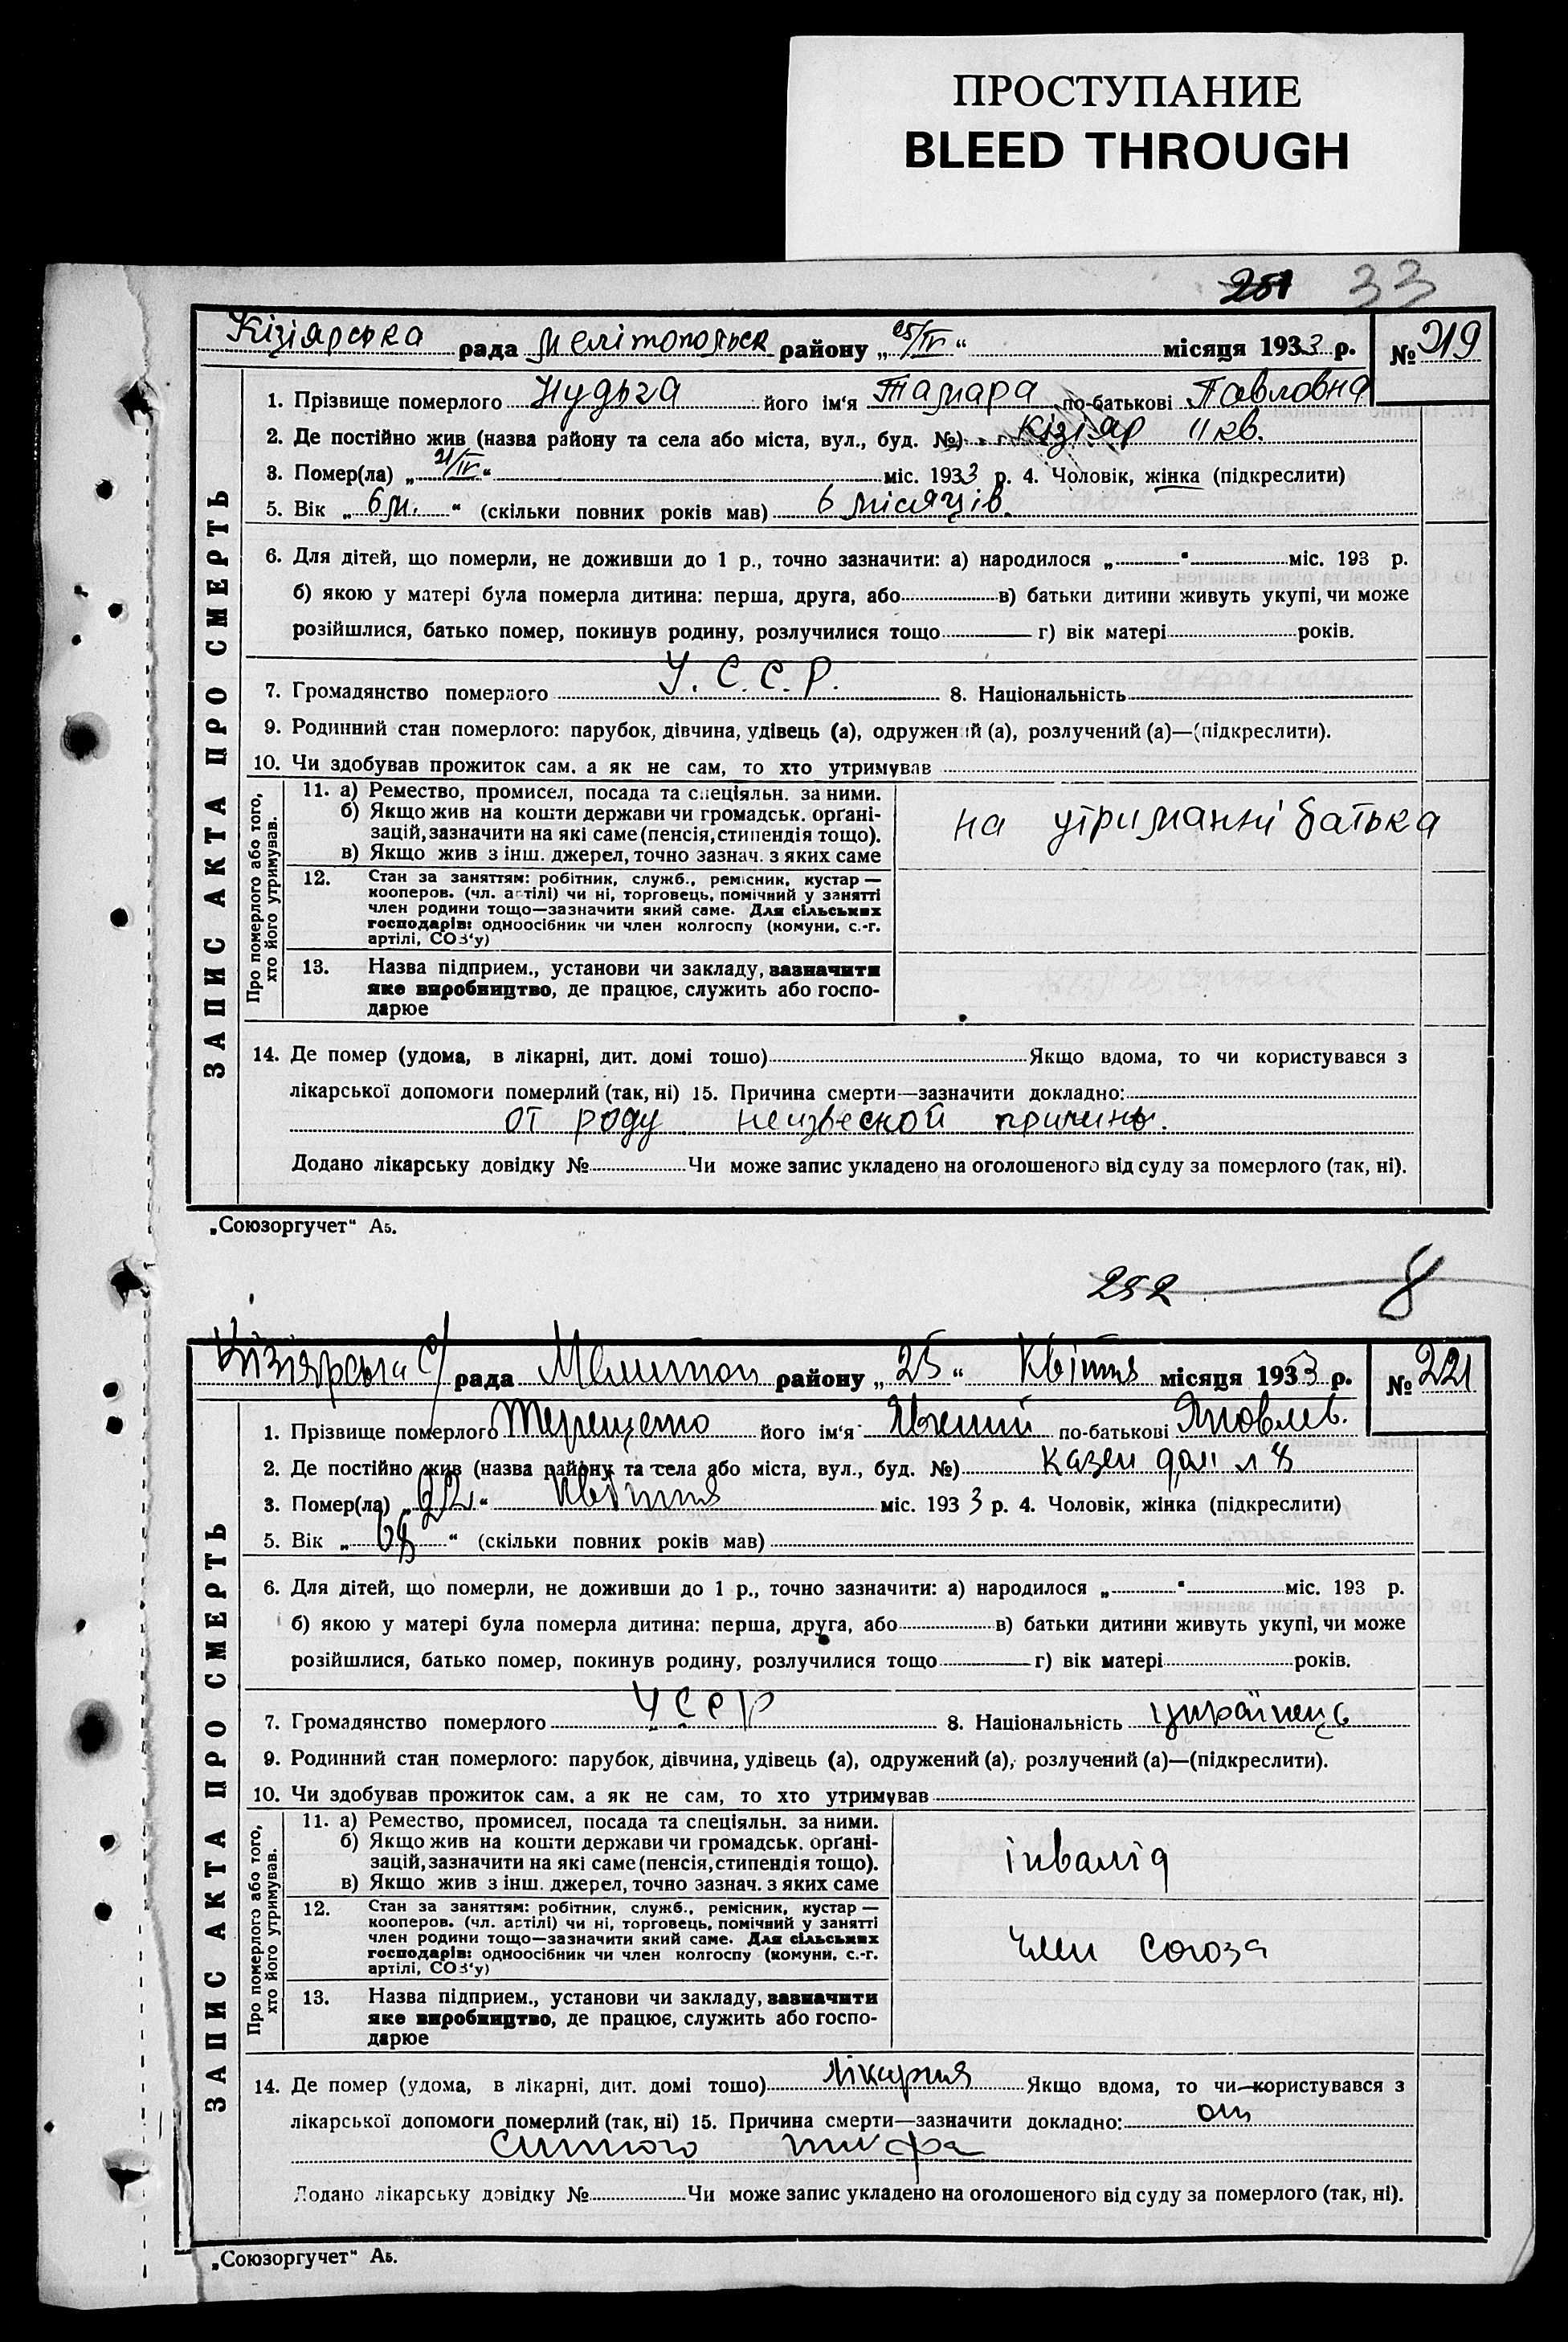 ПРОСТУПАНИЕ
BLEED THROUGH
251 33
Кізіярська рада Мелітопольск району „25/IV“ місяця 1933 р. № 219
ЗАПИС АКТА ПРО СМЕРТЬ
1. Прізвище померлого Нудьга його ім'я Тамара по-батькові Павловна
2. Де постійно жив (назва району та села або міста, вул., буд. №) Кізіяр II кв.
3. Помер(ла) „21/IV“ міс. 1933 р. 4. Чоловік, жінка (підкреслити)
5. Вік „6 м.“ (скільки повних років мав) 6 місяців.
6. Для дітей, що померли, не доживши до 1 р., точно зазначити: а) народилося „ “ міс. 193 р.
б) якою у матері була померла дитина: перша, друга, або в) батьки дитини живуть укупі, чи може
розійшлися, батько помер, покинув родину, розлучилися тощо г) вік матері років.
7. Громадянство померлого У.С.С.Р. 8. Національність
9. Родинний стан померлого: парубок, дівчина, удівець (а), одружений (а), розлучений (а)—(підкреслити).
10. Чи здобував прожиток сам, а як не сам, то хто утримував
Про померлого або того, хто його утримував.
11. а) Ремество, промисел, посада та спеціяльн. за ними.
б) Якщо жив на кошти держави чи громадськ. орґані-
зацій, зазначити на які саме (пенсія, стипендія тощо).
в) Якщо жив з інш. джерел, точно зазнач. з яких саме
на утриманні батька
12. Стан за заняттям: робітник, служб., ремісник, кустар—
кооперов. (чл. артілі) чи ні, торговець, помічний у занятті
член родини тощо—зазначити який саме. Для сільських
господарів: одноосібник чи член колгоспу (комуни, с.-г.
артілі, СОЗ'у)
13. Назва підприєм., установи чи закладу, зазначити
яке виробництво, де працює, служить або госпо-
дарює
14. Де помер (удома, в лікарні, дит. домі тошо) Якщо вдома, то чи користувався з
лікарської допомоги померлий (так, ні) 15. Причина смерти—зазначити докладно:
от роду неизвеской причины.
Додано лікарську довідку № Чи може запис укладено на оголошеного від суду за померлого (так, ні).
„Союзоргучет“ А5.
252 8
Кізіярська с/рада Мелитоп району „25“ Квітня місяця 1933 р. № 221
ЗАПИС АКТА ПРО СМЕРТЬ
1. Прізвище померлого його ім'я по-батькові Яковлев.
2. Де постійно жив (назва району та села або міста, вул., буд. №) Казен дом № 8
3. Помер(ла) „22“ Квітня міс. 1933 р. 4. Чоловік, жінка (підкреслити)
5. Вік „ “ (скільки повних років мав)
6. Для дітей, що померли, не доживши до 1 р., точно зазначити: а) народилося „ “ міс. 193 р.
б) якою у матері була померла дитина: перша, друга, або в) батьки дитини живуть укупі, чи може
розійшлися, батько помер, покинув родину, розлучилися тощо г) вік матері років.
7. Громадянство померлого УССР 8. Національність українець
9. Родинний стан померлого: парубок, дівчина, удівець (а), одружений (а), розлучений (а)—(підкреслити).
10. Чи здобував прожиток сам, а як не сам, то хто утримував
Про померлого або того, хто його утримував.
11. а) Ремество, промисел, посада та спеціяльн. за ними.
б) Якщо жив на кошти держави чи громадськ. орґані-
зацій, зазначити на які саме (пенсія, стипендія тощо).
в) Якщо жив з інш. джерел, точно зазнач. з яких саме
інвалід
12. Стан за заняттям: робітник, служб., ремісник, кустар—
кооперов. (чл. артілі) чи ні, торговець, помічний у занятті
член родини тощо—зазначити який саме. Для сільських
господарів: одноосібник чи член колгоспу (комуни, с.-г.
артілі, СОЗ'у)
член союза
13. Назва підприєм., установи чи закладу, зазначити
яке виробництво, де працює, служить або госпо-
дарює
14. Де помер (удома, в лікарні, дит. домі тошо) лікарня Якщо вдома, то чи користувався з
лікарської допомоги померлий (так, ні) 15. Причина смерти—зазначити докладно: от
сипного тифа
Додано лікарську довідку № Чи може запис укладено на оголошеного від суду за померлого (так, ні).
„Союзоргучет“ А5.